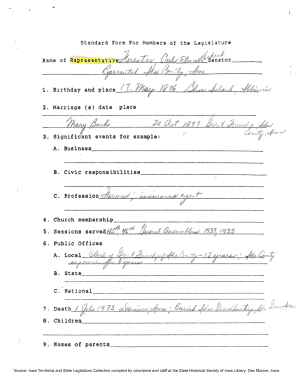 Standard Form For Members of the Legislature
Name of Representative Forester Carl Senator
Represented Ida County, Iowa
1. Birthday and place 17 May 1896 Blue Island, Illinois
2. Marriage (s) date place
Mary 20 Oct 1897 Ida
County Iowa
3. Significant events for example:
A. Business
B. Civic responsibilities
C. Profession Farmer; insurance agent
4. Church membership
5. Sessions served 45th, 46th General Assemblies 1933, 1935
6. Public Offices
A. Local Clerk of Township Ida County - 12 years; Ida County
B. State
C. National
7. Death 1 July 1973 Iowa; buried Ida
8. Children
9. Names of parents
Source: Iowa Territorial and State Legislators Collection compiled by volunteers and staff at the State Historical Society of Iowa Library, Des Moines, Iowa.